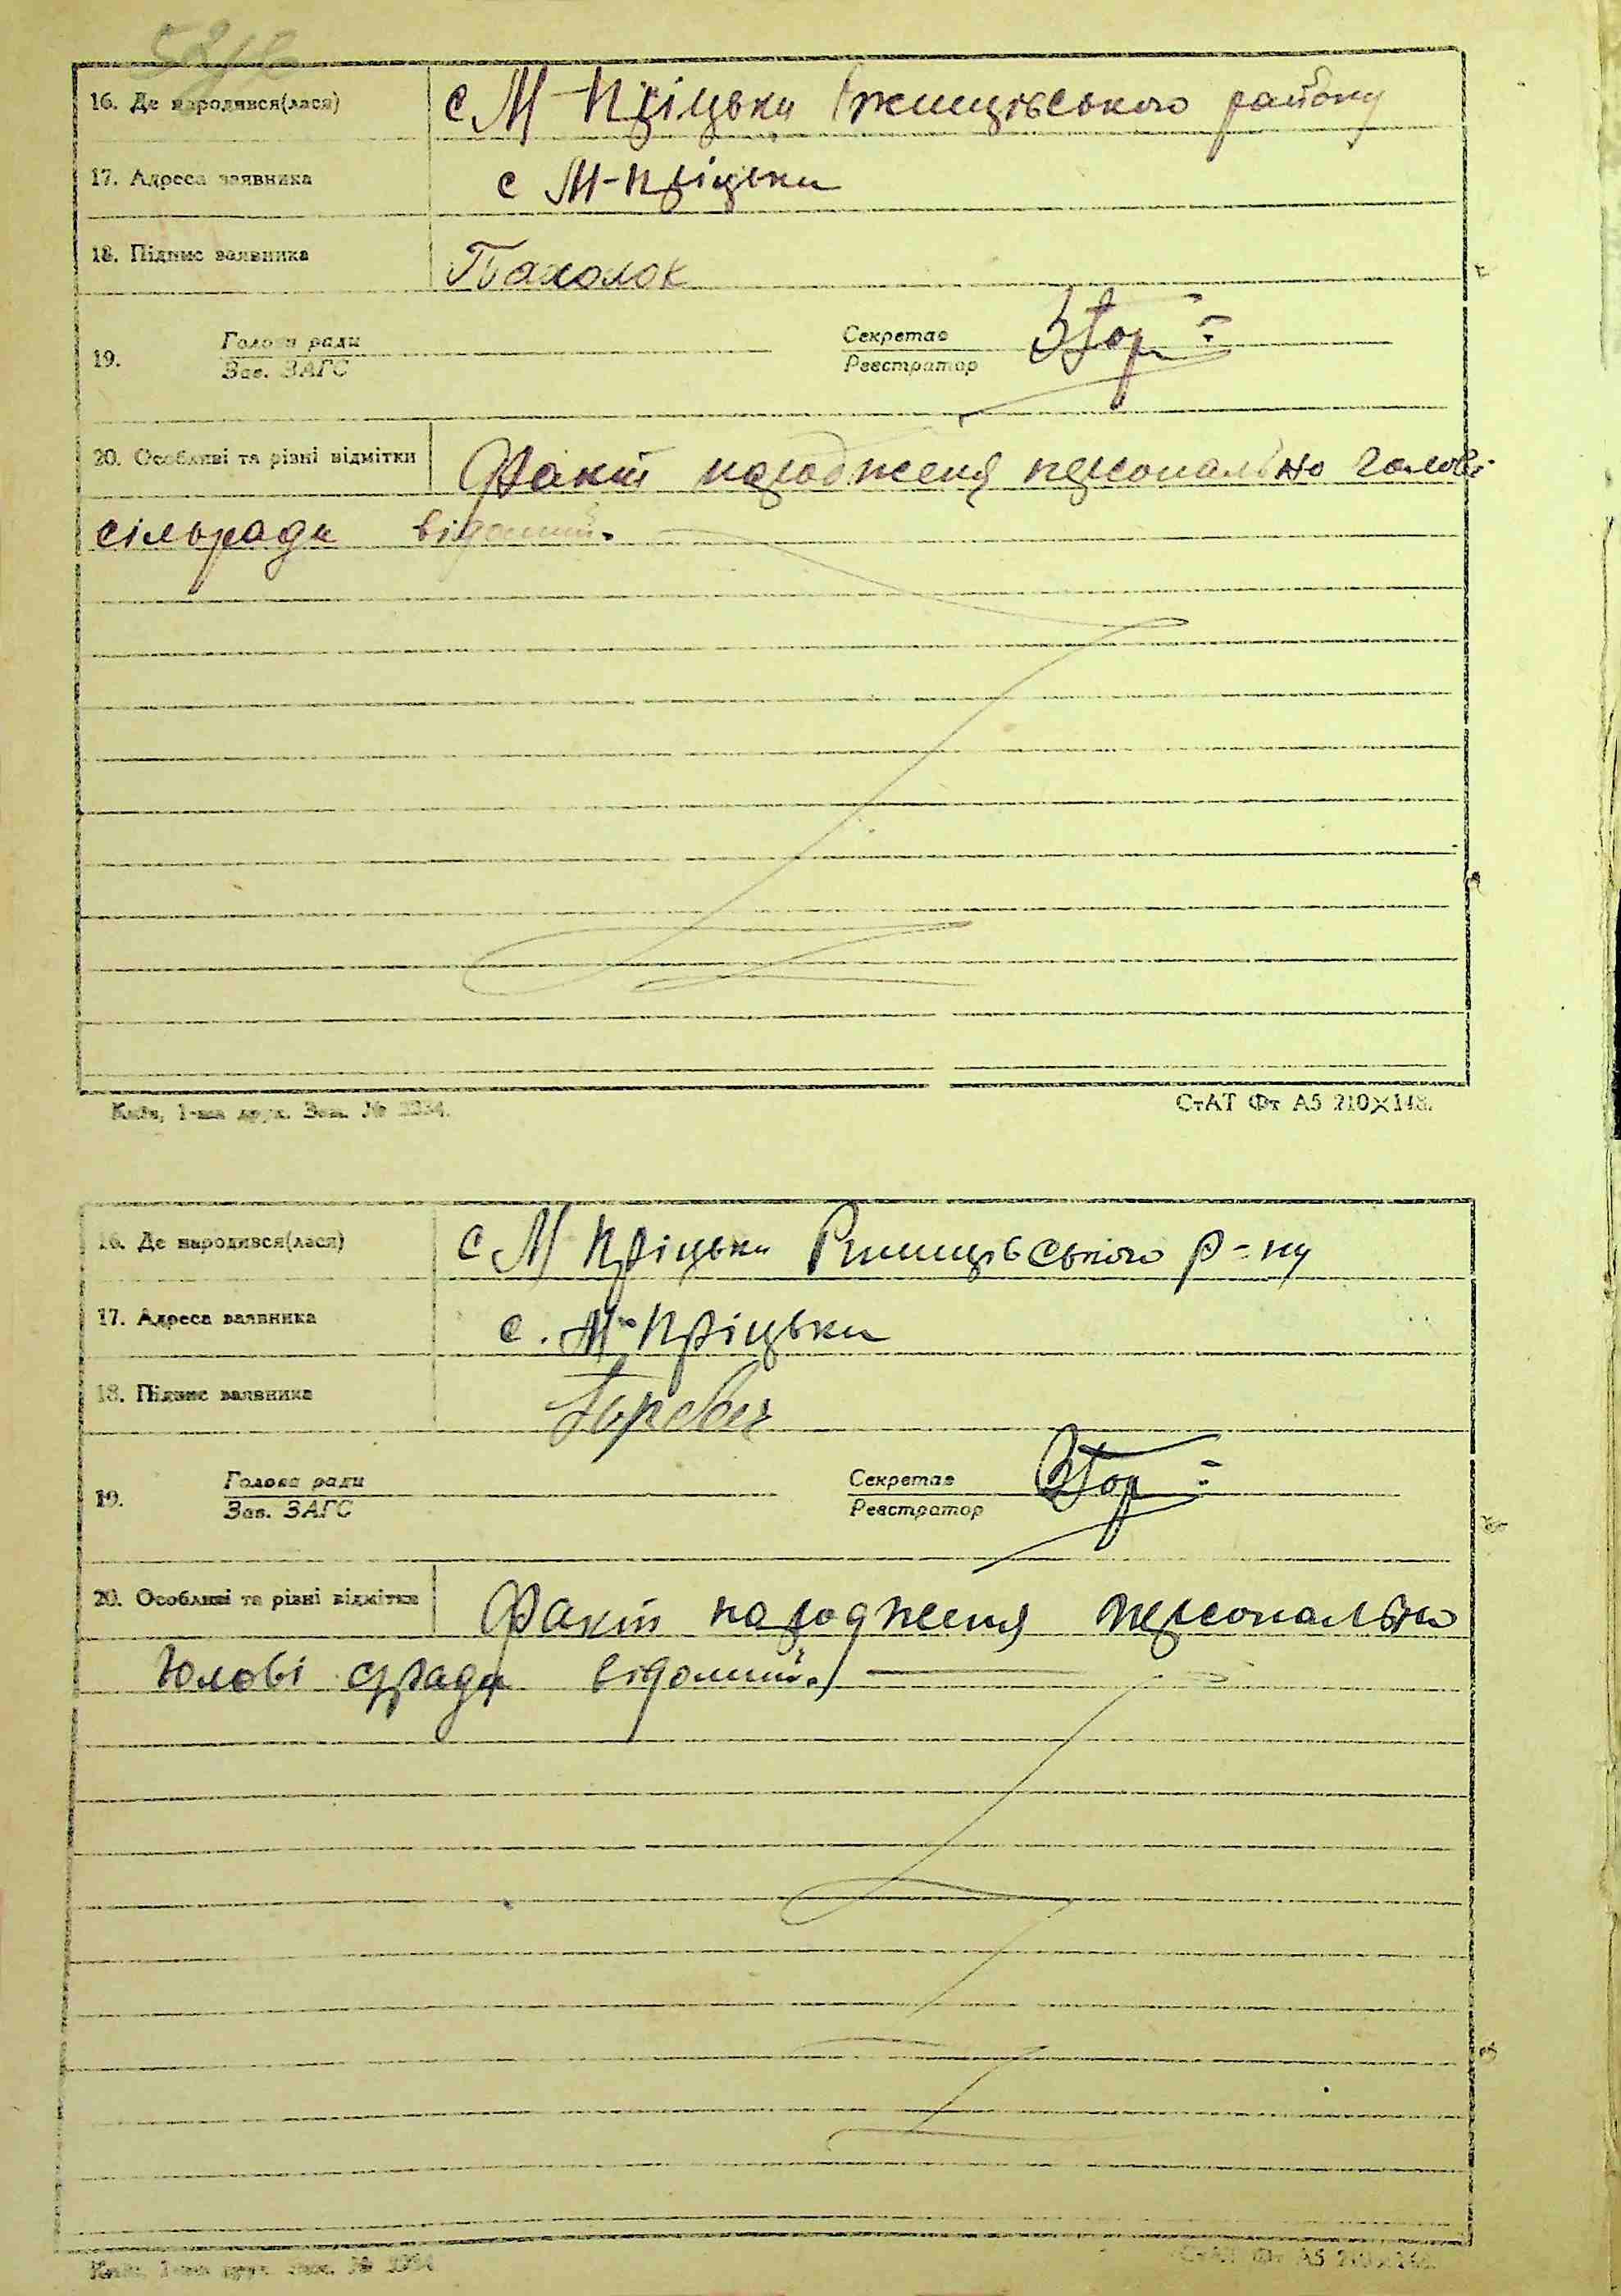 16. Де народився(лася) с М-Пріцьки Ржищівського району
17. Адреса заявника с М-Пріцьки
18. Підпис заявника Пахолок
19. Голова ради Секретар
Зав. ЗАГС Реєстратор
20. Особливі та різні відмітки Факт народженя персонально голові
сільради відомий.
Київ, 1-ша друк. Зам. №
СтАТ Фт А5 210×148.
16. Де народився(лася) с М Пріцьки Ржищівського р-ну
17. Адреса заявника с. М-Пріцьки
18. Підпис заявника
19. Голова ради Секретар
Зав. ЗАГС Реєстратор
20. Особливі та різні відмітки Факт народженя персонально
голові с/ради відомий.
Київ, 1-ша друк. Зам. №
СтАТ Фт А5 210×148.